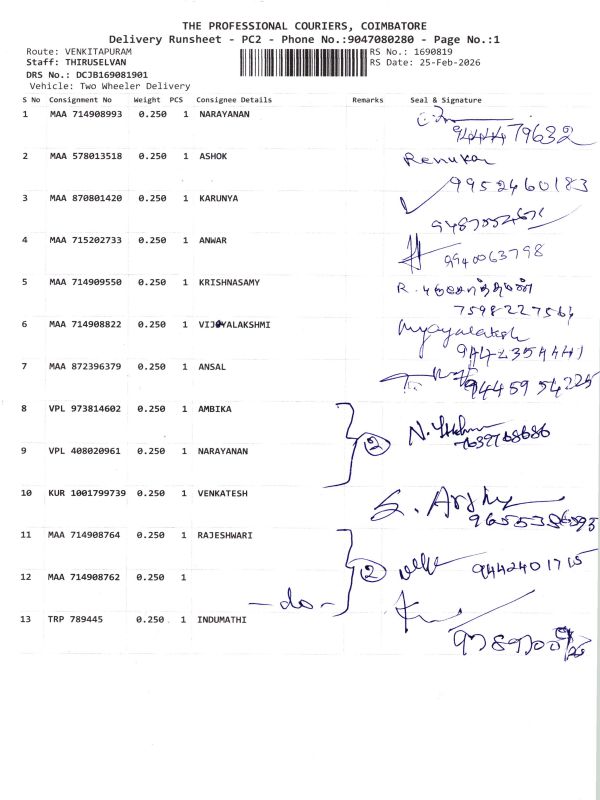 THE PROFESSIONAL COURIERS, COIMBATORE
Delivery Runsheet - PC2 - Phone No.:9047080280 - Page No.:1
Route: VENKITAPURAM
RS No.: 1690819
Staff: THIRUSELVAN
RS Date: 25-Feb-2026
DRS No.: DCJB169081901
Vehicle: Two Wheeler Delivery
S No Consignment No Weight PCS Consignee Details Remarks Seal & Signature
1 MAA 714908993 0.250 1 NARAYANAN
9444479632
2 MAA 578013518 0.250 1 ASHOK Renuka
9952460183
3 MAA 870801420 0.250 1 KARUNYA
4 MAA 715202733 0.250 1 ANWAR
9940063798
5 MAA 714909550 0.250 1 KRISHNASAMY
7598227564
6 MAA 714908822 0.250 1 VIJAYALAKSHMI
9442354441
7 MAA 872396379 0.250 1 ANSAL
9445954225
8 VPL 973814602 0.250 1 AMBIKA
2
9 VPL 408020961 0.250 1 NARAYANAN
10 KUR 1001799739 0.250 1 VENKATESH
9655386593
11 MAA 714908764 0.250 1 RAJESHWARI
2 9442401715
12 MAA 714908762 0.250 1
-do-
13 TRP 789445 0.250 1 INDUMATHI